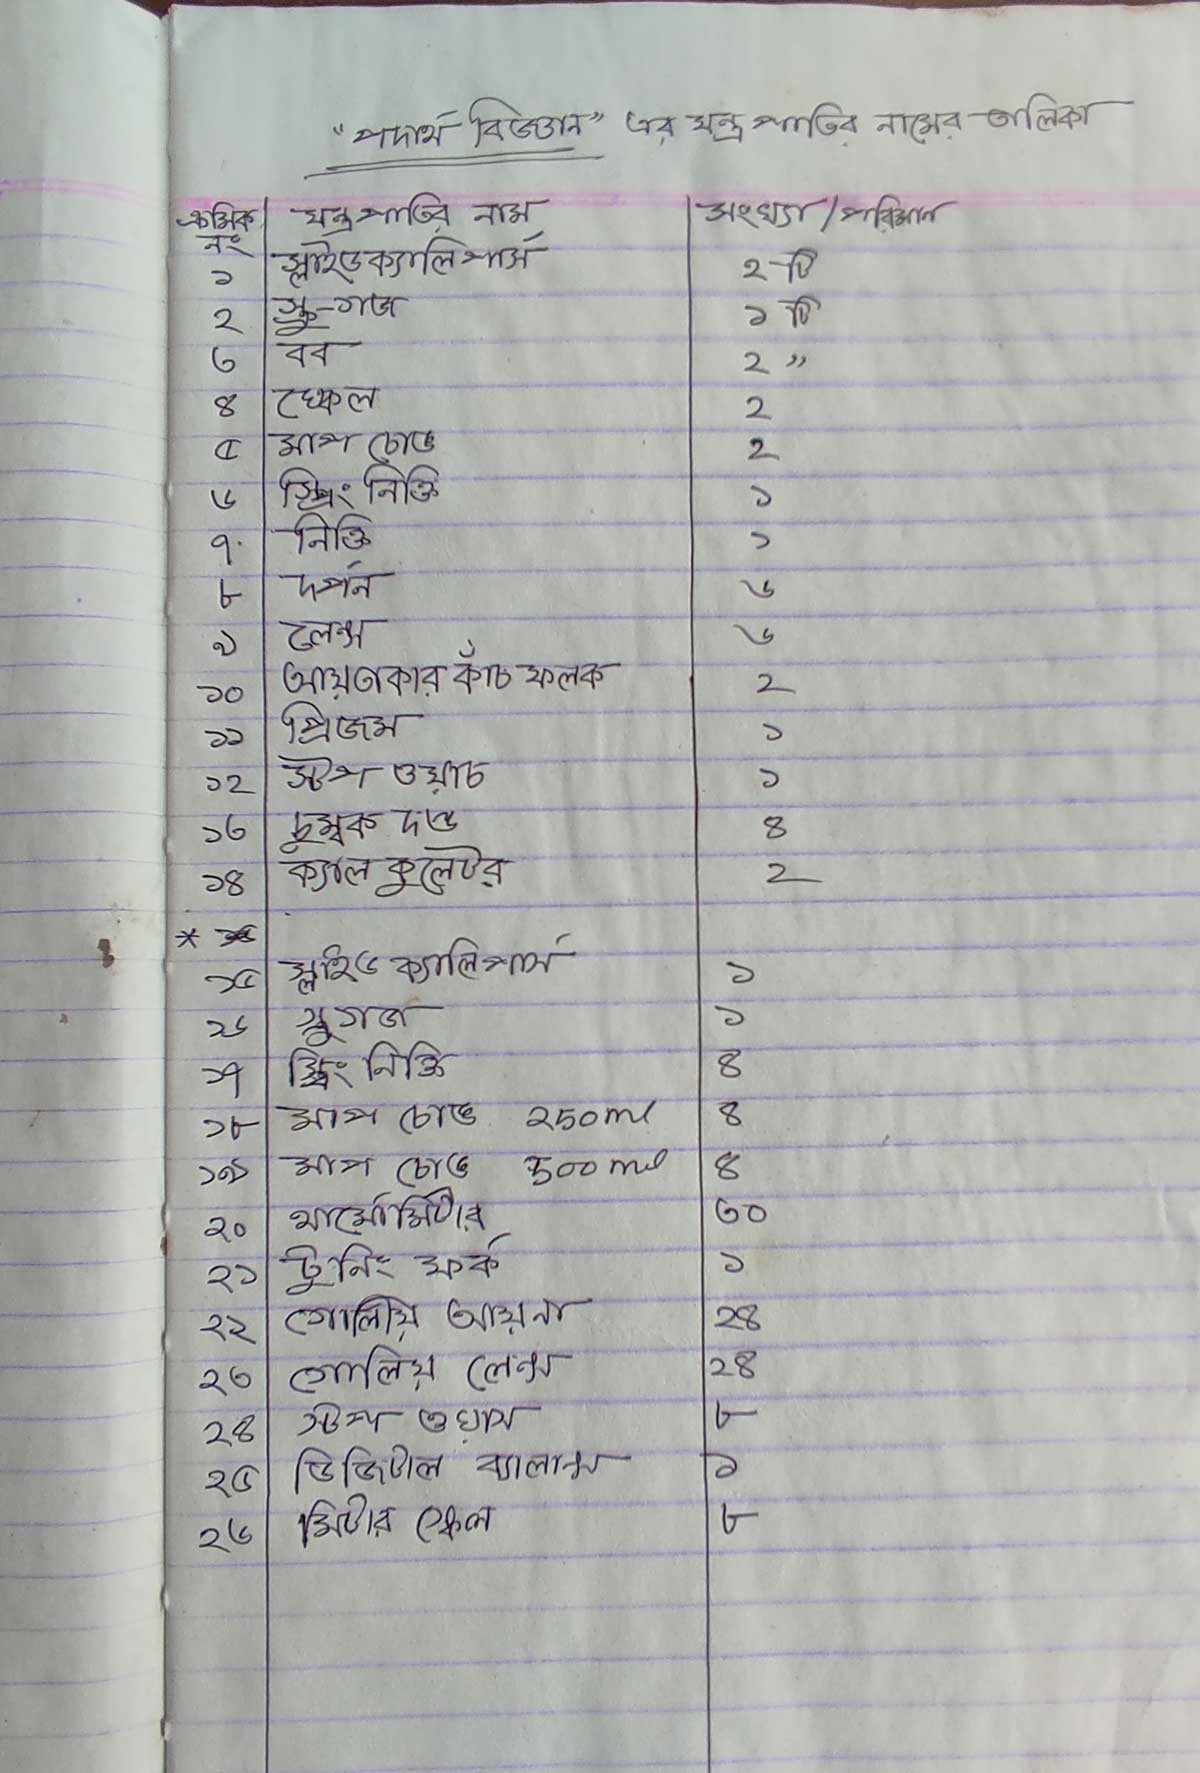 "পদার্থ বিজ্ঞান" এর যন্ত্রপাতির নামের তালিকা
ক্রমিক নং যন্ত্রপাতির নাম সংখ্যা/পরিমাণ
১ স্লাইডক্যালিপার্স ২টি
২ স্ক্রু-গজ ১টি
৩ বব ২ "
৪ স্কেল ২
৫ মাপ চোঙ ২
৬ স্প্রিং নিক্তি ১
৭. নিক্তি ১
৮ দর্পন ৬
৯ লেন্স ৬
১০ আয়তাকার কাঁচ ফলক ২
১১ প্রিজম ১
১২ স্টপ ওয়াচ ১
১৩ চুম্বক দণ্ড ৪
১৪ ক্যালকুলেটর ২
*
১৫ স্লাইড ক্যালিপার্স ১
১৬ স্ক্রুগজ ১
১৭ স্প্রিং নিক্তি ৪
১৮ মাপ চোঙ ২৫0ml ৪
১৯ মাপ চোঙ 500ml ৪
২০ থার্মোমিটার ৩০
২১ টুনিং ফর্ক ১
২২ গোলিয় আয়না ২৪
২৩ গোলিয় লেন্স ২৪
২৪ স্টপ ওয়াচ ৮
২৫ ডিজিটাল ব্যালান্স ১
২৬ মিটার স্কেল ৮